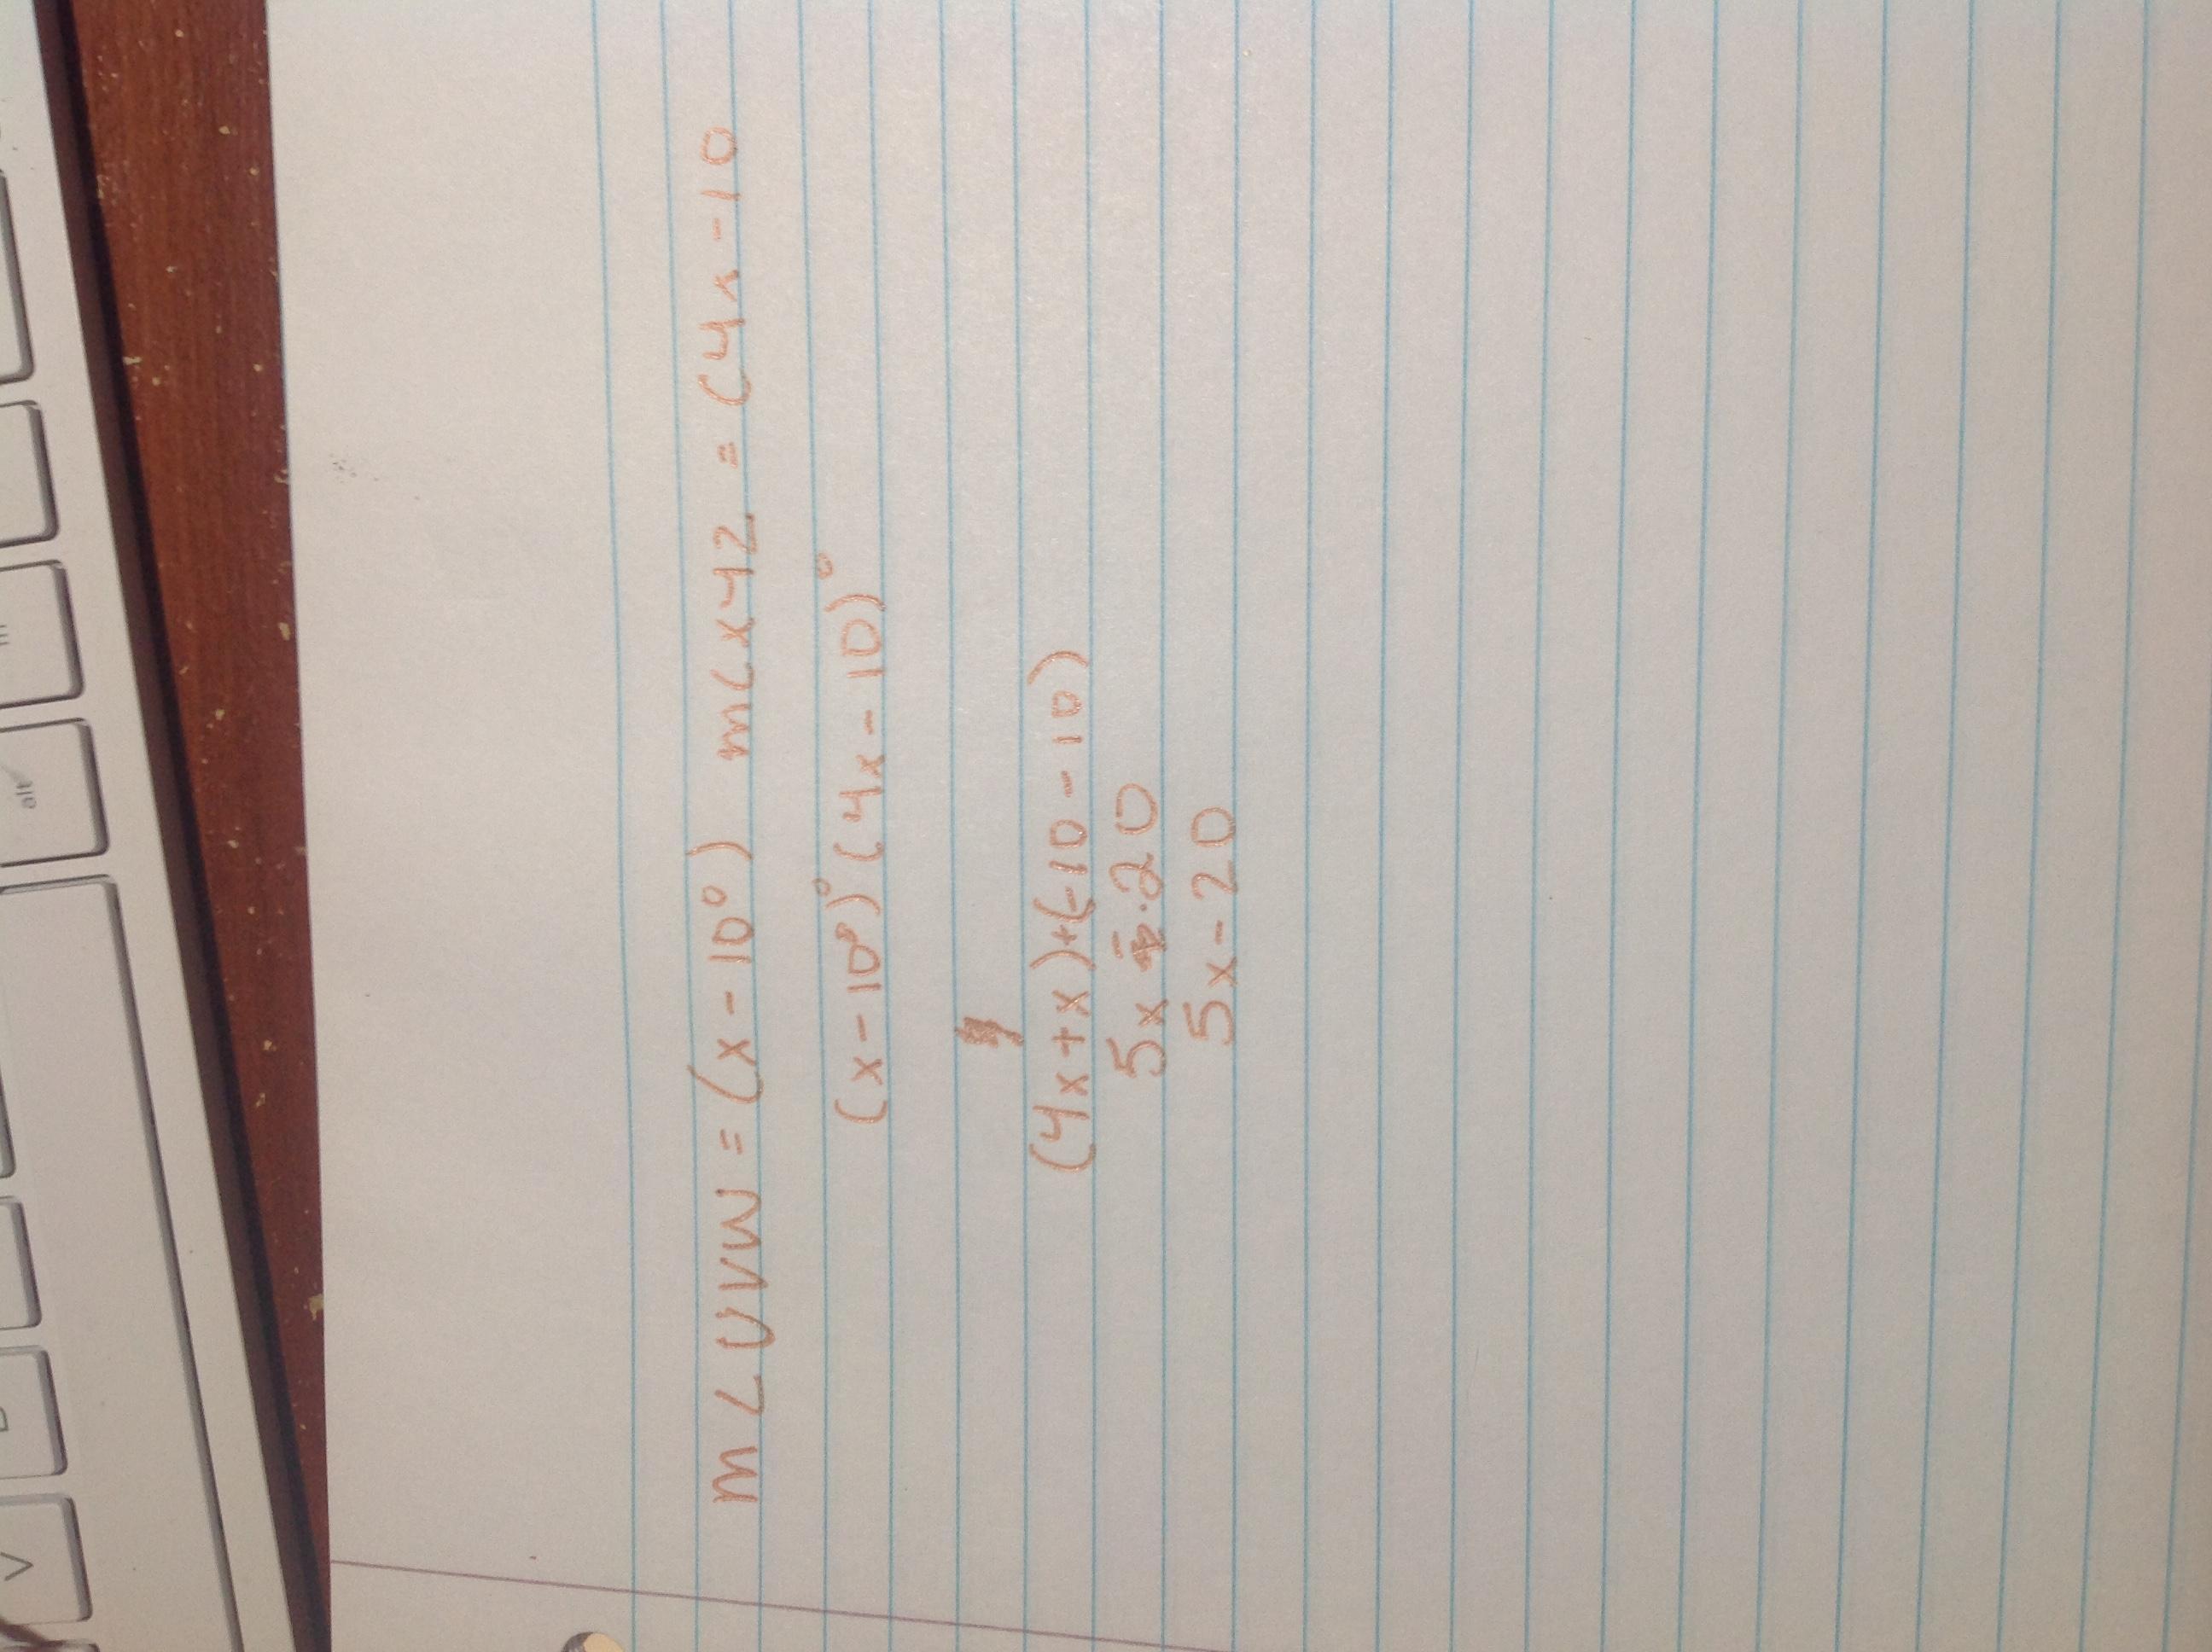 m∠UVW = (x - 10°) m∠XYZ = (4x - 10
(x - 10°)° (4x - 10)°
(4x + x) + (-10 - 10)
5x - 20
5x - 20
alt
V